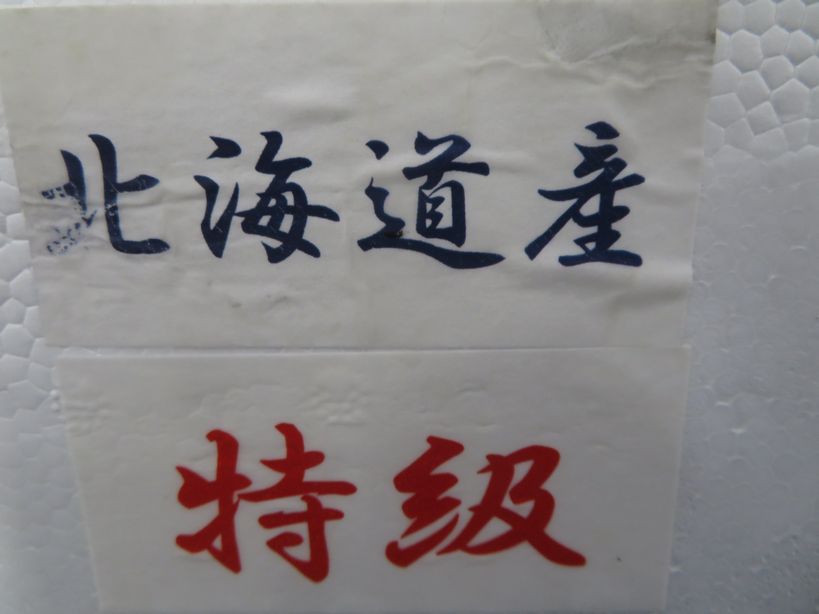 北海道産
特級